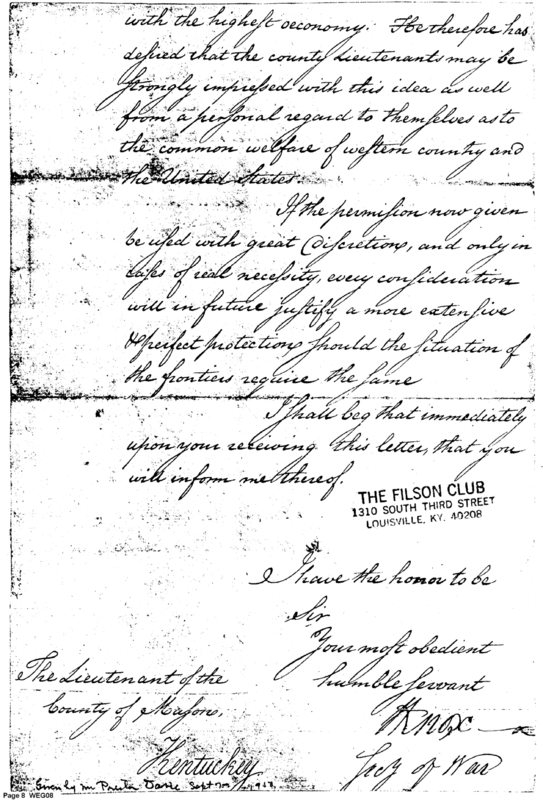 with the highest oeconomy. He therefore has
desired that the county Lieutenants may be
strongly impressed with this idea as well
from a personal regard to themselves as to
the common welfare of western country and
the United States.
If the permission now given
be used with great Discretion, and only in
cases of real necessity, every consideration
will in future justify a more extensive
& perfect protection, should the situation of
the frontiers require the same
I shall beg that immediately
upon your receiving this letter, that you
will inform me thereof.
THE FILSON CLUB
1310 SOUTH THIRD STREET
LOUISVILLE, KY. 40208
I have the honor to be
Sir
Your most obedient
humble servant
HKnox
Secy of War
The Lieutenant of the
County of Mason,
Kentuckey
Given by Mr Preston Sept
Page 8 WEG08